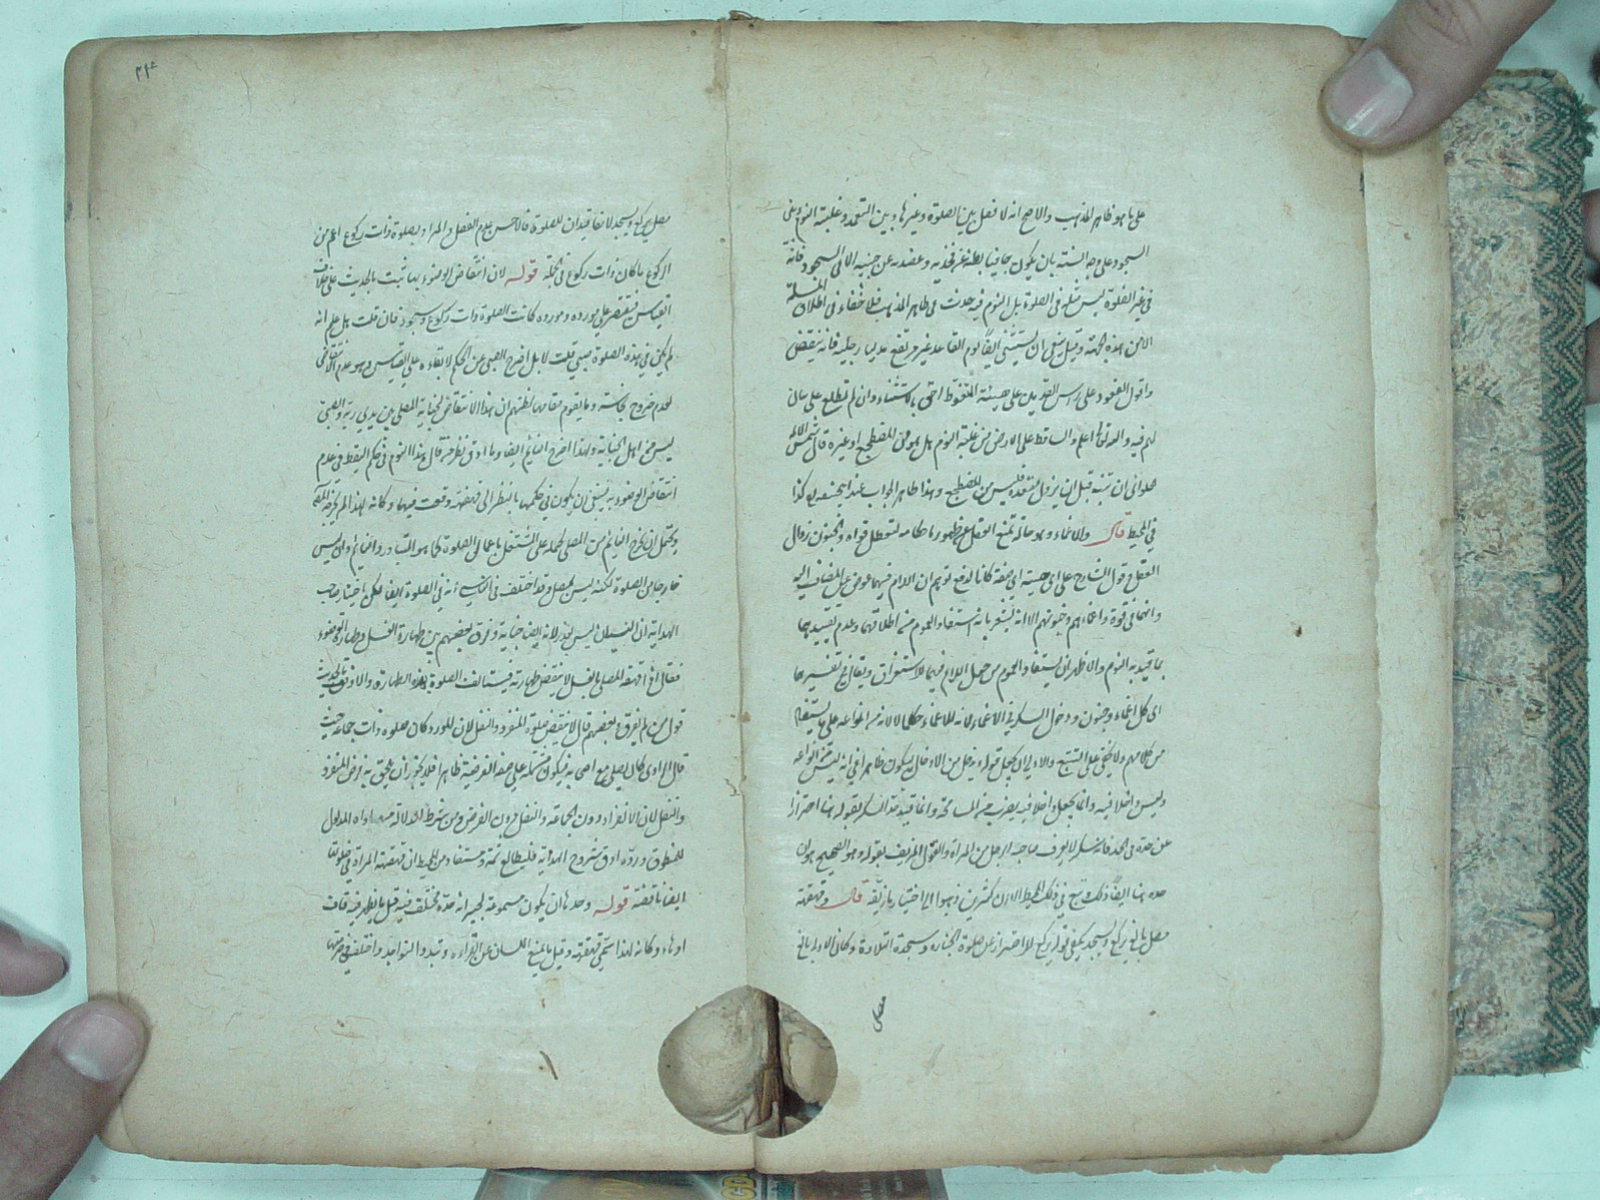 على ما هو ظاهر المذهب والاصح انه لا فصل بين الصلوة وغيرها وبين التعمد وغلبة النوم وفى
السجود على وجه السنة بان يكون جافيا بطنه عن فخذيه وعضديه عن جنبيه الا فى السجود فانه
فى غير الصلوة ليس مثله فى الصلوة بل النوم فيه حدث فى ظاهر المذهب فلا خفاء فى اطلاق المسئلة
الا من هذه الجهة وقيل ينبغى ان يستثنى ايضا نوم القاعد غير مرتفع رجليه فانه ينقض
واقول القعود على رأس القدمين على هيئة المتغوط احق بالاستثناء وان لم نطلع على بيان
لهم فيه والساقط على الارض من غلبة النوم هل هو فى المضطجع او غيره قال شمس الائمة
حلوانى ان تنبه قبل ان يزول مقعده فليس من المضطجع وهذا ظاهر الجواب عند ابيحنيفة كذا
فى المحيط قال والاغماء وهو حالة تمنع العقل عن ظهور احكامه لتعطل قواه والجنون زوال
العقل وقول الشارح على اى هيئة اى صفة كانا لدفع توهم ان اللام فيهما عوض عن المضاف اليه
وانهما فى قوة واغمائهم وجنونهم الا انه يشعر بانه استفاد العموم من اطلاقهما وعدم تقييدهما
بما قيد به النوم والاظهر ان يستفاد العموم من حمل اللام فيهما للاستغراق ويقال فى تفسيرهما
اى كل اغماء وجنون ودخول السكر فى الاغماء لانه للاغماء حكما لا لانه من انواعه على ما يستفاد
من كلامهم ولا يخفى على المتتبع
وليس داخلا فيه وانما يجعل داخلا فيه
عن حده فى الحد فانه سكر لا يعرف صاحبه الرجل من المرأة والقول المزيف بقوله وهو الصحيح هو ان
حده هنا ايضا ذلك وتبع فى ذلك المحيط الا ان كثيرين ذهبوا الى اختيار ما زيفه قال وقهقهة
مصل بالغ يركع ويسجد يكفى قوله يركع للاحتراز عن صلوة الجنازة وسجدة التلاوة وكان الاولى بالغ
مصل
٣١٤
مصل يركع ويسجد لانهما قيدان للصلوة فالاحسن عدم الفصل والمراد بصلوة ذات ركوع اعم من
الركوع ما كان ذات ركوع فى الجملة قوله لان انتقاض الوضوء بها ثبت بالحديث على خلاف
القياس فيقتصر على مورده ومورده كانت الصلوة ذات ركوع وسجود فان قلت هل علم انه
لم يكن فى هذه الصلوة صبى قلت لا بل اخرج الصبى عن الحكم لابقاءه على القياس وهو عدم الانتقاض
لعدم خروج نجاسة وما يقوم مقامها لظنهم ان هذا الانتقاض لجناية المصلى بين يدى ربه والصبى
ليس من اهل الجناية ولهذا اخرج النائم ايضا وما ادق نظر من قال هذا النوم فى حكم اليقظة فى عدم
انتقاض الوضوء به فينبغى ان يكون فى حكمها بالنظر الى قهقهة وقعت فيها وكانه لهذا لم يذكره المصنف
ويحتمل ان يخرج النائم من المصلى لحمله على المشتغل باعمال الصلوة كما هو المتبادر والنائم وان ليس
خارجا من الصلوة لكنه ليس بمصل وقد اختلف فى الناسى انه فى الصلوة ايضا لكن اختيار صاحب
الهداية ان النسيان ليس بعذر لانه ايضا جناية وفرق بعضهم بين طهارة الغسل وطهارة الوضوء
فقال اذا قهقه المصلى بالغسل لا ينقض طهارته فيستأنف الصلوة بهذه الطهارة والاوفق بالحديث
قول من لم يفرق وبعضهم قال لا ينقض صلوة المنفرد والنفل لان المورد كان صلوة ذات جماعة حيث
قال الراوى كان يصلى مع اصحابه فيكون مشتملة على صفة الفرضية ظاهرا فلا يجوز ان يلحق به فرض المنفرد
والنفل لان الانفراد دون الجماعة والنفل دون الفرض ومن شرط الدلالة مساواة المدلول
للمنطوق ورده ادق شروح الهداية فليطالع ثمة ويستفاد من المحيط ان قهقهة المرأة فى صلوتها
ايضا ناقضة قوله وحدها ان يكون مسموعة لجيرانه حده مختلف فيه قيل ما يظهر فيه قاف
او هاء وكانه لهذا سمى قهقهة وقيل ما يمنع اللسان عن القراءة وتبدو النواجد واختلف فى حرمتها